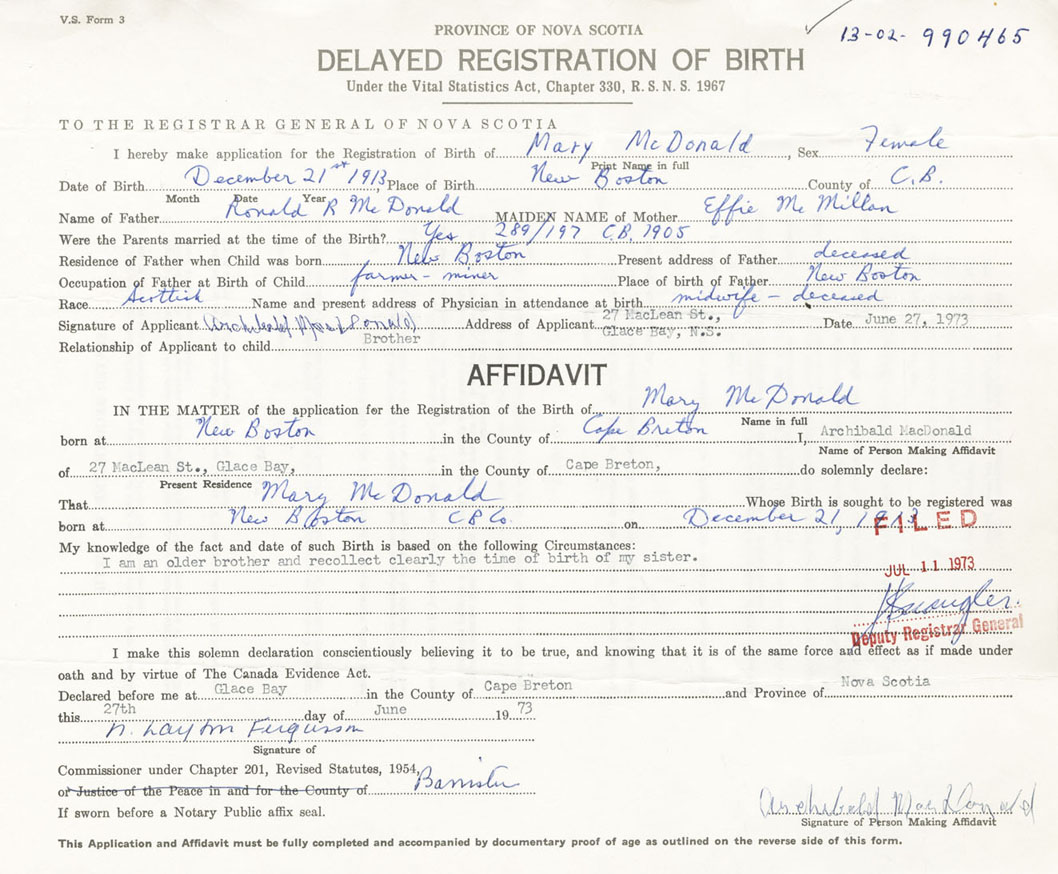 V.S. Form 3
13-02- 990465
PROVINCE OF NOVA SCOTIA
DELAYED REGISTRATION OF BIRTH
Under the Vital Statistics Act, Chapter 330, R. S. N. S. 1967
TO THE REGISTRAR GENERAL OF NOVA SCOTIA
I hereby make application for the Registration of Birth of Mary McDonald, Sex Female
Print Name in full
Date of Birth December 21st 1913, Place of Birth New Boston County of C.B.
Month Date Year
Name of Father Ronald R McDonald MAIDEN NAME of Mother Effie McMillan
Were the Parents married at the time of the Birth? Yes 289/197 C.B. 1905
Residence of Father when Child was born New Boston Present address of Father deceased
Occupation of Father at Birth of Child farmer - miner Place of birth of Father New Boston
Race Scottish Name and present address of Physician in attendance at birth midwife - deceased
Signature of Applicant Archibald MacDonald Address of Applicant 27 MacLean St., Glace Bay, N.S. Date June 27, 1973
Relationship of Applicant to child Brother
AFFIDAVIT
IN THE MATTER of the application for the Registration of the Birth of Mary McDonald
Name in full
born at New Boston in the County of Cape Breton I, Archibald MacDonald
Name of Person Making Affidavit
of 27 MacLean St., Glace Bay, in the County of Cape Breton, do solemnly declare:
Present Residence
That Mary McDonald Whose Birth is sought to be registered was
born at New Boston C B Co. on December 21, 1913
FILED
My knowledge of the fact and date of such Birth is based on the following Circumstances:
I am an older brother and recollect clearly the time of birth of my sister.
JUL 11 1973
Deputy Registrar General
I make this solemn declaration conscientiously believing it to be true, and knowing that it is of the same force and effect as if made under
oath and by virtue of The Canada Evidence Act.
Declared before me at Glace Bay in the County of Cape Breton and Province of Nova Scotia
this 27th day of June 19 73
N. Layton Fergusson
Signature of
Commissioner under Chapter 201, Revised Statutes, 1954,
or Justice of the Peace in and for the County of Barrister
If sworn before a Notary Public affix seal.
Archibald MacDonald
Signature of Person Making Affidavit
This Application and Affidavit must be fully completed and accompanied by documentary proof of age as outlined on the reverse side of this form.